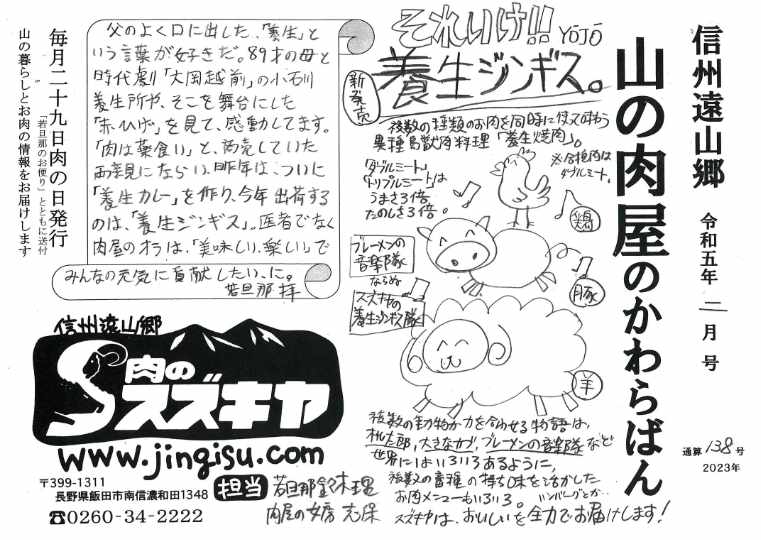 信州遠山郷
令和五年
二月号
山の肉屋のかわらばん
通算138号
2023年
それいけ!! YŌJŌ
新発売
養生ジンギス。
複数の種類のお肉を同時に使って味わう
異種鳥獣肉料理「養生焼肉」。
※合挽肉は
ダブルミート。
「ダブルミート」
「トリプルミート」は
うまさ3倍、
たのしさ3倍。
鶏
ブレーメンの
音楽隊
ならぬ
スズキヤの
養生ジンギス隊
豚
羊
複数の動物が力を合わせる物語は、
桃太郎、大きなカブ、ブレーメンの音楽隊など
世界にはいろいろあるように、
複数の畜種の持ち味を活かした
お肉メニューもいろいろ。
ハンバーグとか…
スズキヤは、おいしいを全力でお届けします!
父のよく口に出した、「養生」と
いう言葉が好きだ。89才の母と
時代劇「大岡越前」の小石川
養生所や、そこを舞台にした
「赤ひげ」を見て、感動してます。
「肉は薬食い」と、商売していた
両親にならい、昨年は、ついに
「養生カレー」を作り、今年出荷する
のは、「養生ジンギス」。医者でなく
肉屋のオラは、「美味しい、楽しい」で
みんなの元気に貢献したい、に。
若旦那 拝
毎月二十九日肉の日発行
「若旦那のお便り」とともに送付
山の暮らしとお肉の情報をお届けします
信州遠山郷
肉の
スズキヤ
www.jingisu.com
〒399-1311
長野県飯田市南信濃和田1348
☎0260-34-2222
担当
若旦那 鈴木理
肉屋の女房 志保